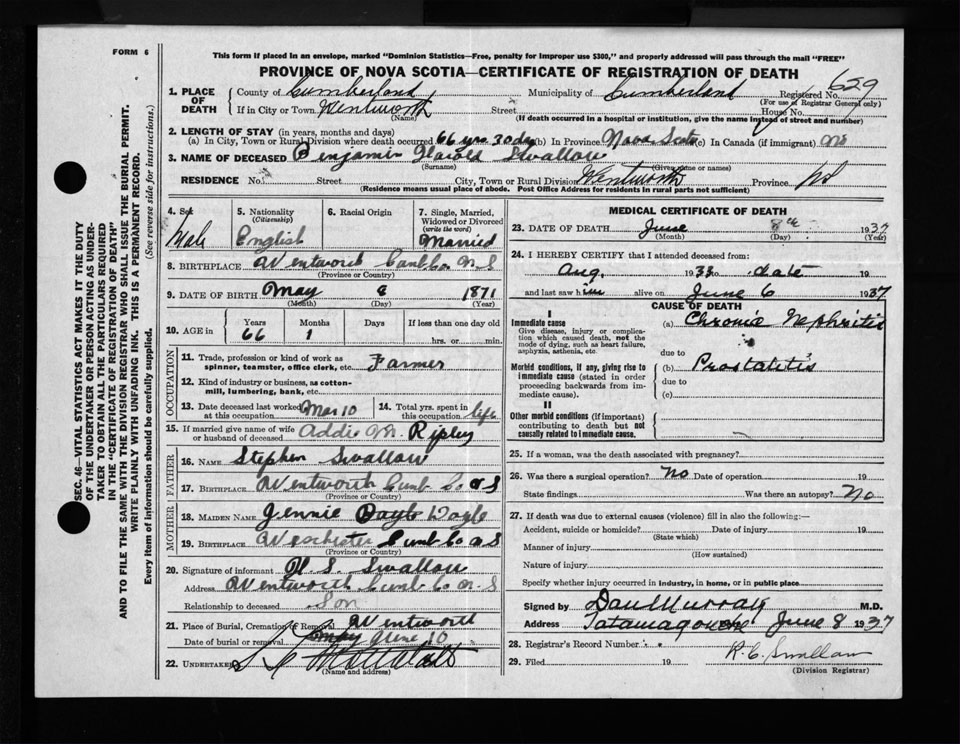 FORM 6
This form if placed in an envelope, marked "Dominion Statistics—Free, penalty for improper use $300," and properly addressed will pass through the mail "FREE"
PROVINCE OF NOVA SCOTIA—CERTIFICATE OF REGISTRATION OF DEATH
629
1. PLACE OF DEATH
County of Cumberland Municipality of Cumberland Registered No.
(For use of Registrar General only)
If in City or Town Wentworth Street House No.
(Name) (If death occurred in a hospital or institution, give the name instead of street and number)
2. LENGTH OF STAY (in years, months and days)
(a) In City, Town or Rural Division where death occurred 66 yrs 30 dy (b) In Province Nova Scota (c) In Canada (if immigrant) no
3. NAME OF DECEASED Benjamin Harold Swallow
(Surname) (Given name or names)
RESIDENCE No. Street City, Town or Rural Division Wentworth Province NS
(Residence means usual place of abode. Post Office Address for residents in rural parts not sufficient)
4. Sex 5. Nationality 6. Racial Origin 7. Single, Married, Widowed or Divorced
(Citizenship) (write the word)
Male English Married
8. BIRTHPLACE Wentworth Cumb Co N S
(Province or Country)
9. DATE OF BIRTH May 1871
(Month) (Day) (Year)
10. AGE in Years Months Days If less than one day old
66 1 hrs. or min.
OCCUPATION
11. Trade, profession or kind of work as spinner, teamster, office clerk, etc. Farmer
12. Kind of industry or business, as cotton-mill, lumbering, bank, etc.
13. Date deceased last worked at this occupation Mar 10 14. Total yrs. spent in this occupation life
15. If married give name of wife or husband of deceased Addie M. Ripley
FATHER
16. NAME Stephen Swallow
17. BIRTHPLACE Wentworth Cumb Co N S
(Province or Country)
MOTHER
18. MAIDEN NAME Jennie Doyle
19. BIRTHPLACE Westchester Cumb Co N S
(Province or Country)
20. Signature of informant H. S. Swallow
Address Wentworth Cumb Co N. S
Relationship to deceased Son
21. Place of Burial, Cremation or Removal Wentworth
Date of burial or removal June 10
22. UNDERTAKER
(Name and address)
MEDICAL CERTIFICATE OF DEATH
23. DATE OF DEATH June 8th 1937
(Month) (Day) (Year)
24. I HEREBY CERTIFY that I attended deceased from:
Aug. 1933 to date 19
and last saw him alive on June 6 1937
CAUSE OF DEATH
I
Immediate cause (a) Chronic Nephritis
Give disease, injury or complication which caused death, not the mode of dying, such as heart failure, asphyxia, asthenia, etc.
due to
Morbid conditions, if any, giving rise to immediate cause (stated in order proceeding backwards from immediate cause). (b) Prostatitis
due to
(c)
II
Other morbid conditions (if important) contributing to death but not causally related to immediate cause.
25. If a woman, was the death associated with pregnancy?
26. Was there a surgical operation? No Date of operation 19
State findings Was there an autopsy? No
27. If death was due to external causes (violence) fill in also the following:—
Accident, suicide or homicide? Date of injury 19
(State which)
Manner of injury
(How sustained)
Nature of injury
Specify whether injury occurred in industry, in home, or in public place
Signed by Dan Murray M.D.
Address Tatamagouche June 8 1937
28. Registrar's Record Number
29. Filed 19 R. C. Swallow
(Division Registrar)
SEC. 46—VITAL STATISTICS ACT MAKES IT THE DUTY
OF THE UNDERTAKER OR PERSON ACTING AS UNDER-
TAKER TO OBTAIN ALL THE PARTICULARS REQUIRED
IN THE "CERTIFICATE OF REGISTRATION OF DEATH"
AND TO FILE THE SAME WITH THE DIVISION REGISTRAR WHO SHALL ISSUE THE BURIAL PERMIT.
WRITE PLAINLY WITH UNFADING INK. THIS IS A PERMANENT RECORD.
Every item of information should be carefully supplied. (See reverse side for instructions.)